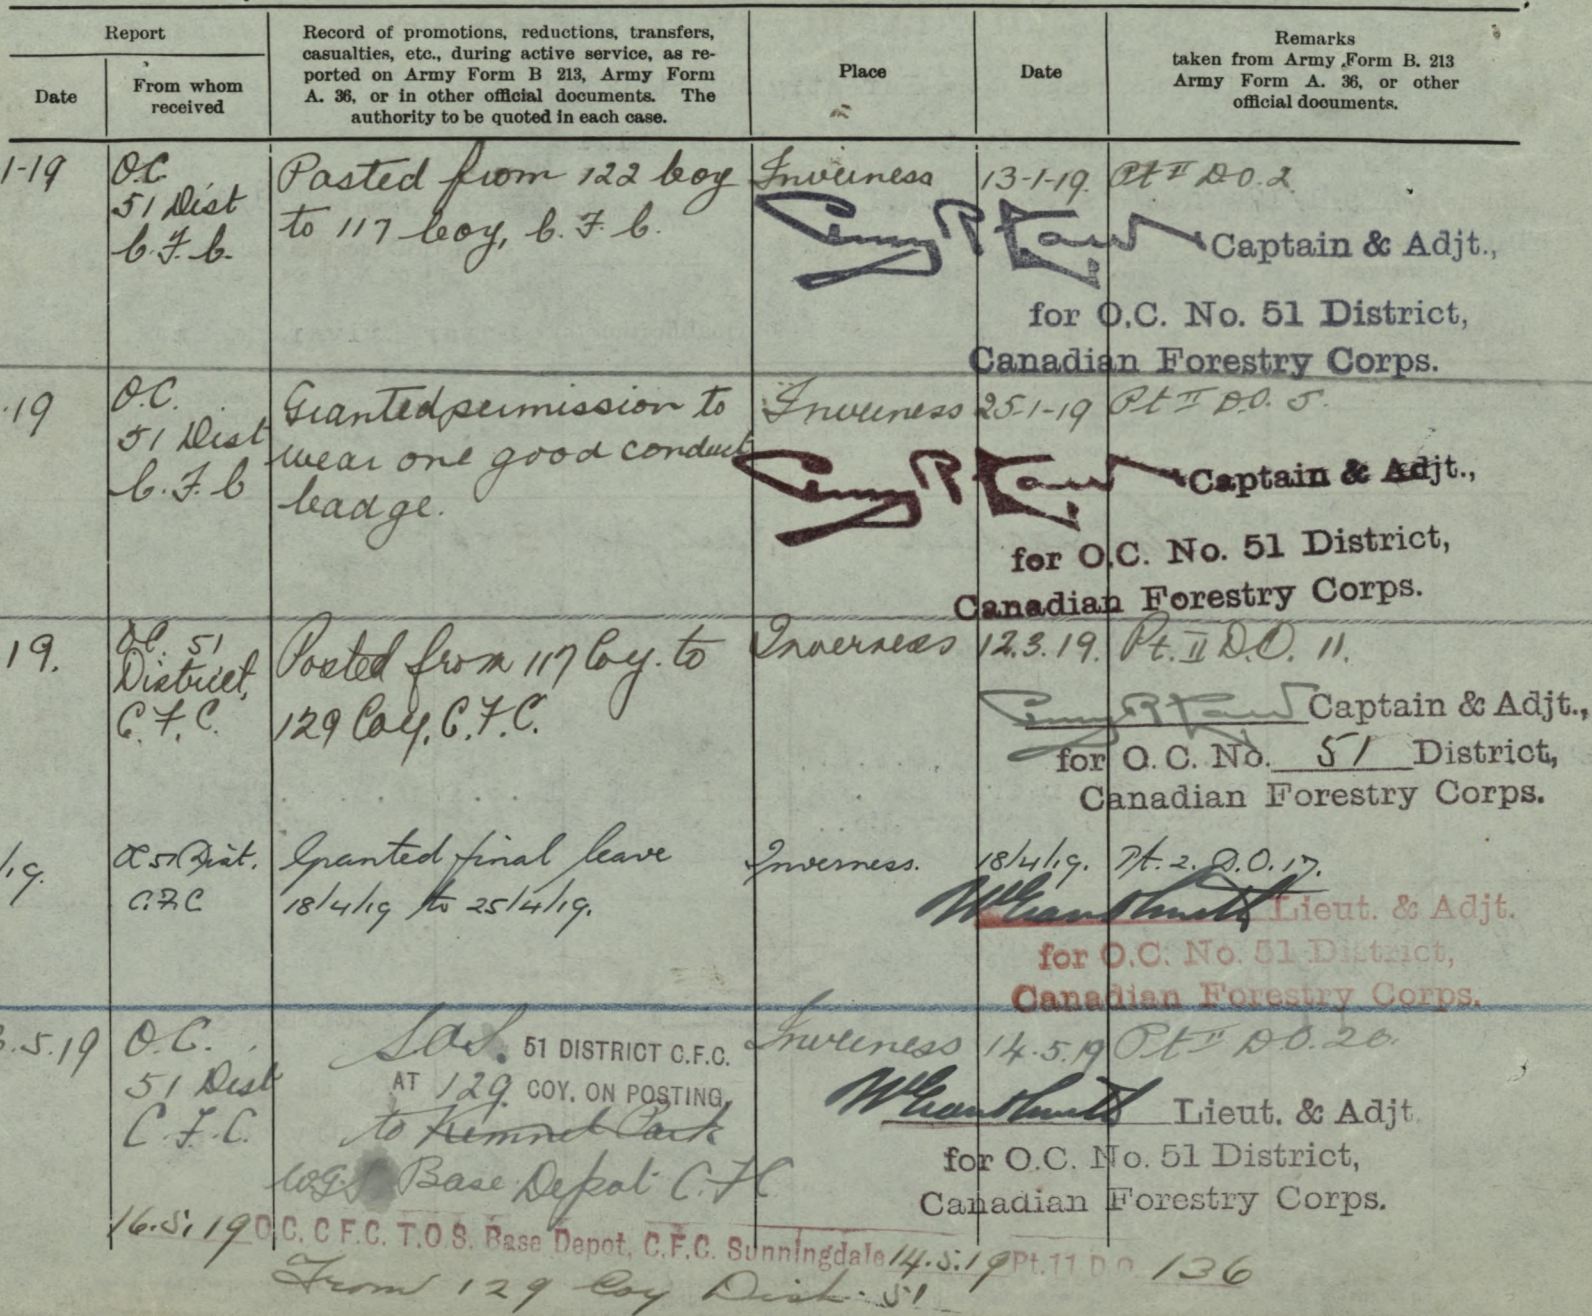 Report
Date
From whom
received
Record of promotions, reductions, transfers,
casualties, etc., during active service, as re-
ported on Army Form B 213, Army Form
A. 36, or in other official documents. The
authority to be quoted in each case.
Place
Date
Remarks
taken from Army Form B. 213
Army Form A. 36, or other
official documents.
1-19
O.C.
51 Dist
C.F.C.
Posted from 122 Coy
to 117 Coy, C.F.C.
Inverness
13-1-19.
Pt II D.O. 2.
Captain & Adjt.,
for O.C. No. 51 District,
Canadian Forestry Corps.
.19
O.C.
51 Dist
C.F.C
Granted permission to
wear one good conduct
badge.
Inverness
25-1-19
Pt II D.O. 5.
Captain & Adjt.,
for O.C. No. 51 District,
Canadian Forestry Corps.
19.
O.C. 51
District,
C.F.C.
Posted from 117 Coy. to
129 Coy, C.F.C.
Inverness
12.3.19.
Pt. II D.O. 11.
Captain & Adjt.,
for O.C. No. 51 District,
Canadian Forestry Corps.
/19.
OC 51 Dist.
C.F.C
Granted final leave
18/4/19 to 25/4/19.
Inverness.
18/4/19.
Pt. 2. D.O. 17.
Lieut. & Adjt.
for O.C. No. 51 District,
Canadian Forestry Corps.
.5.19
O.C.
51 Dist
C.F.C.
S.O.S. 51 DISTRICT C.F.C.
AT 129 COY. ON POSTING,
to Kinmel Park
Base Depot C.F.C
Inverness
14.5.19
Pt II D.O. 20.
Lieut. & Adjt
for O.C. No. 51 District,
Canadian Forestry Corps.
16.5.19 O.C. C.F.C. T.O.S. Base Depot, C.F.C. Sunningdale 14.5.19 Pt. 11 D.O. 136
From 129 Coy Dist. 51